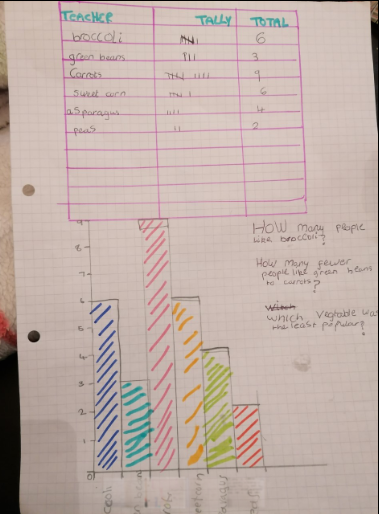 TEACHER TALLY TOTAL
broccoli 6
green beans 3
Carrots 9
sweet corn 6
asparagus 4
peas 2
9
8
7
6
5
4
3
2
1
0
HOW many people
like broccoli?
How many fewer
people like green beans
to carrots?
which vegetable was
the least popular?